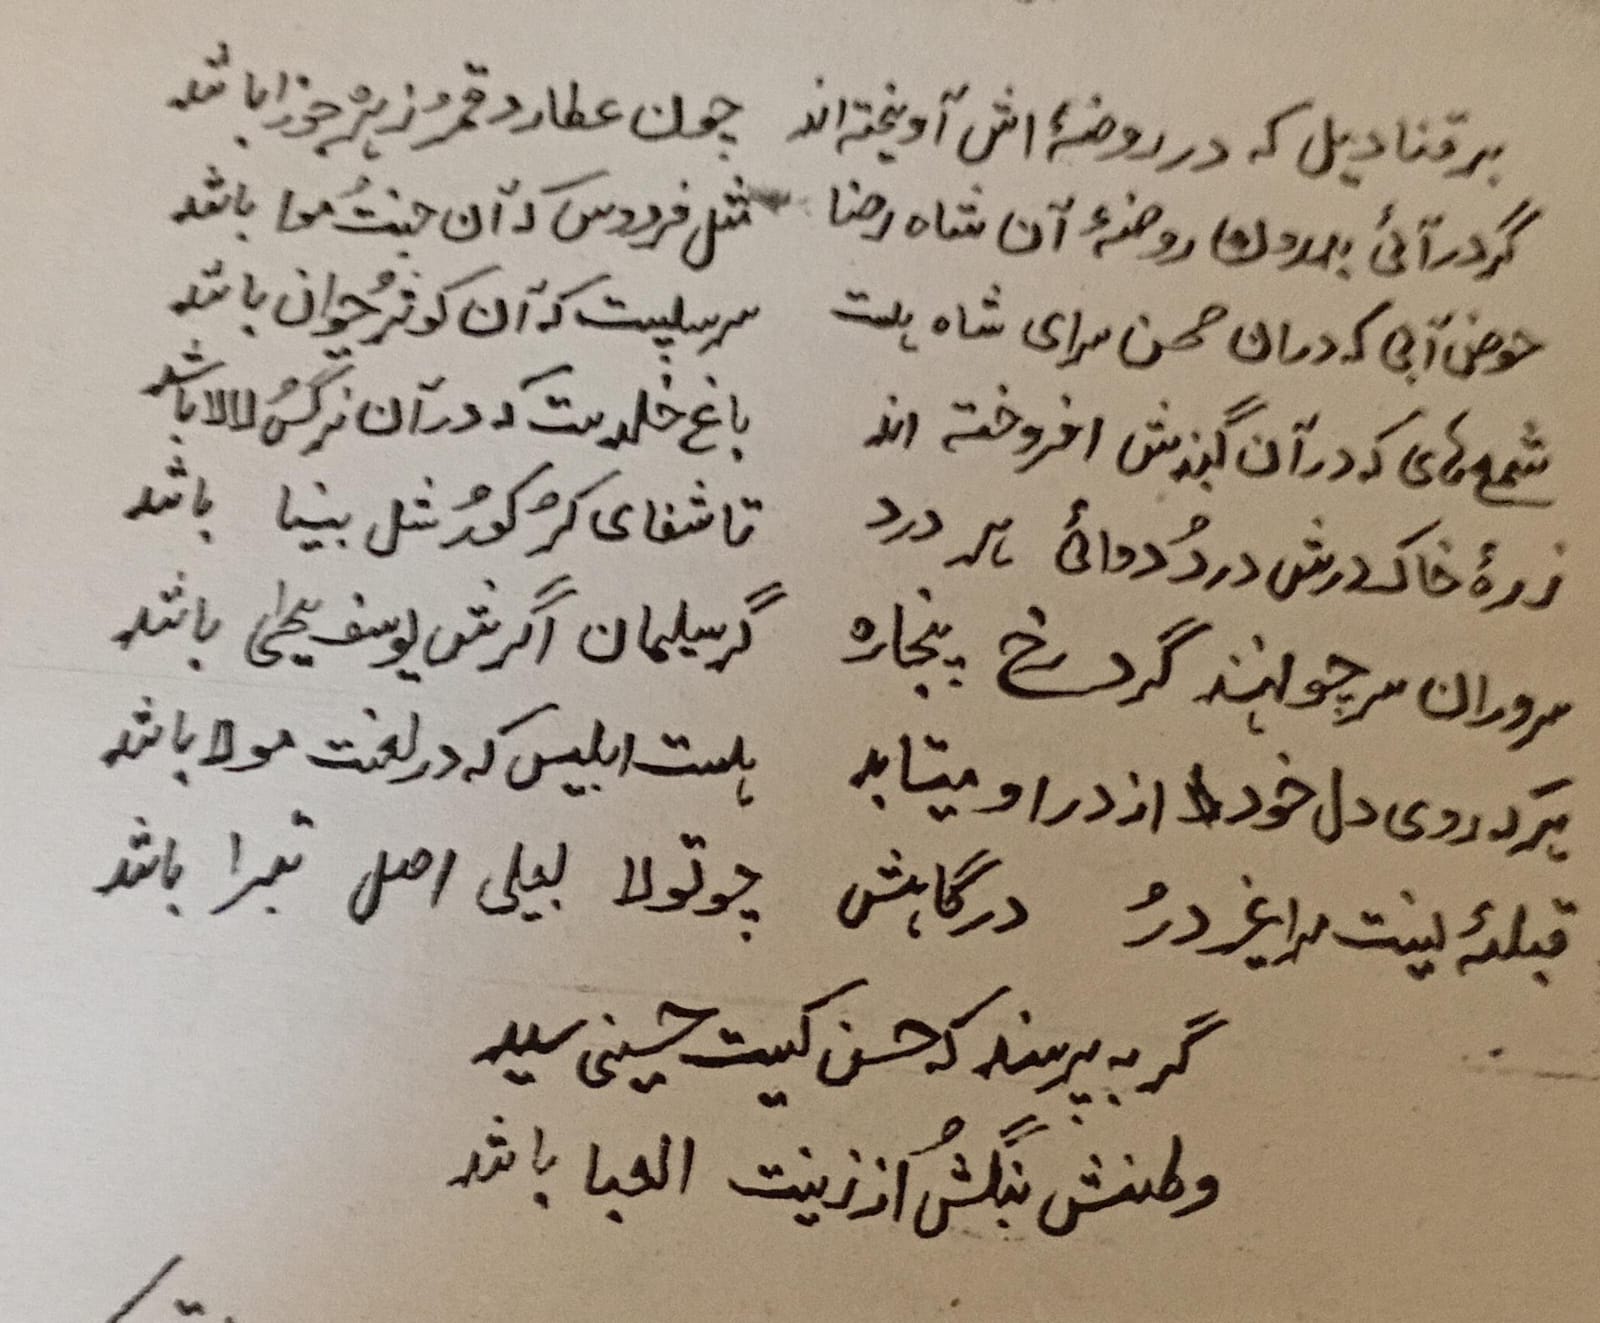 بر قنادیل که در روضۀ اش آویخته اند چون عطارد و قمر و زهره جوزا باشد
گر در آئی بدرون روضۀ آن شاه رضا مثل فردوس که آن جنتُ موا باشد
حوض آبی که دران صحن سرای شاه هست سرسبیلیست که آن کوثرُ حیوان باشد
شمع های که در آن گنبدش افروخته اند باغ خلدیست که در آن نرگسُ لالا باشد
زرۀ خاک درش دردُ دوائ هر درد تا شفای کرُ کورُ شل بینا باشد
سروران سر چو نهند گرد رخ پنجاره گر سلیمان اگرش یوسف یحیٰ باشد
هرکه روی دل خود از در او میتابد هست ابلیس که در لعنت مولا باشد
قبلۀ نیست مرا غیر درُ درگاهش چو تولا بعلی اصل تبرا باشد
گر به پرسند که حسن کیست حسینی سید
وطنش بنگشُ از زینت العبا باشد